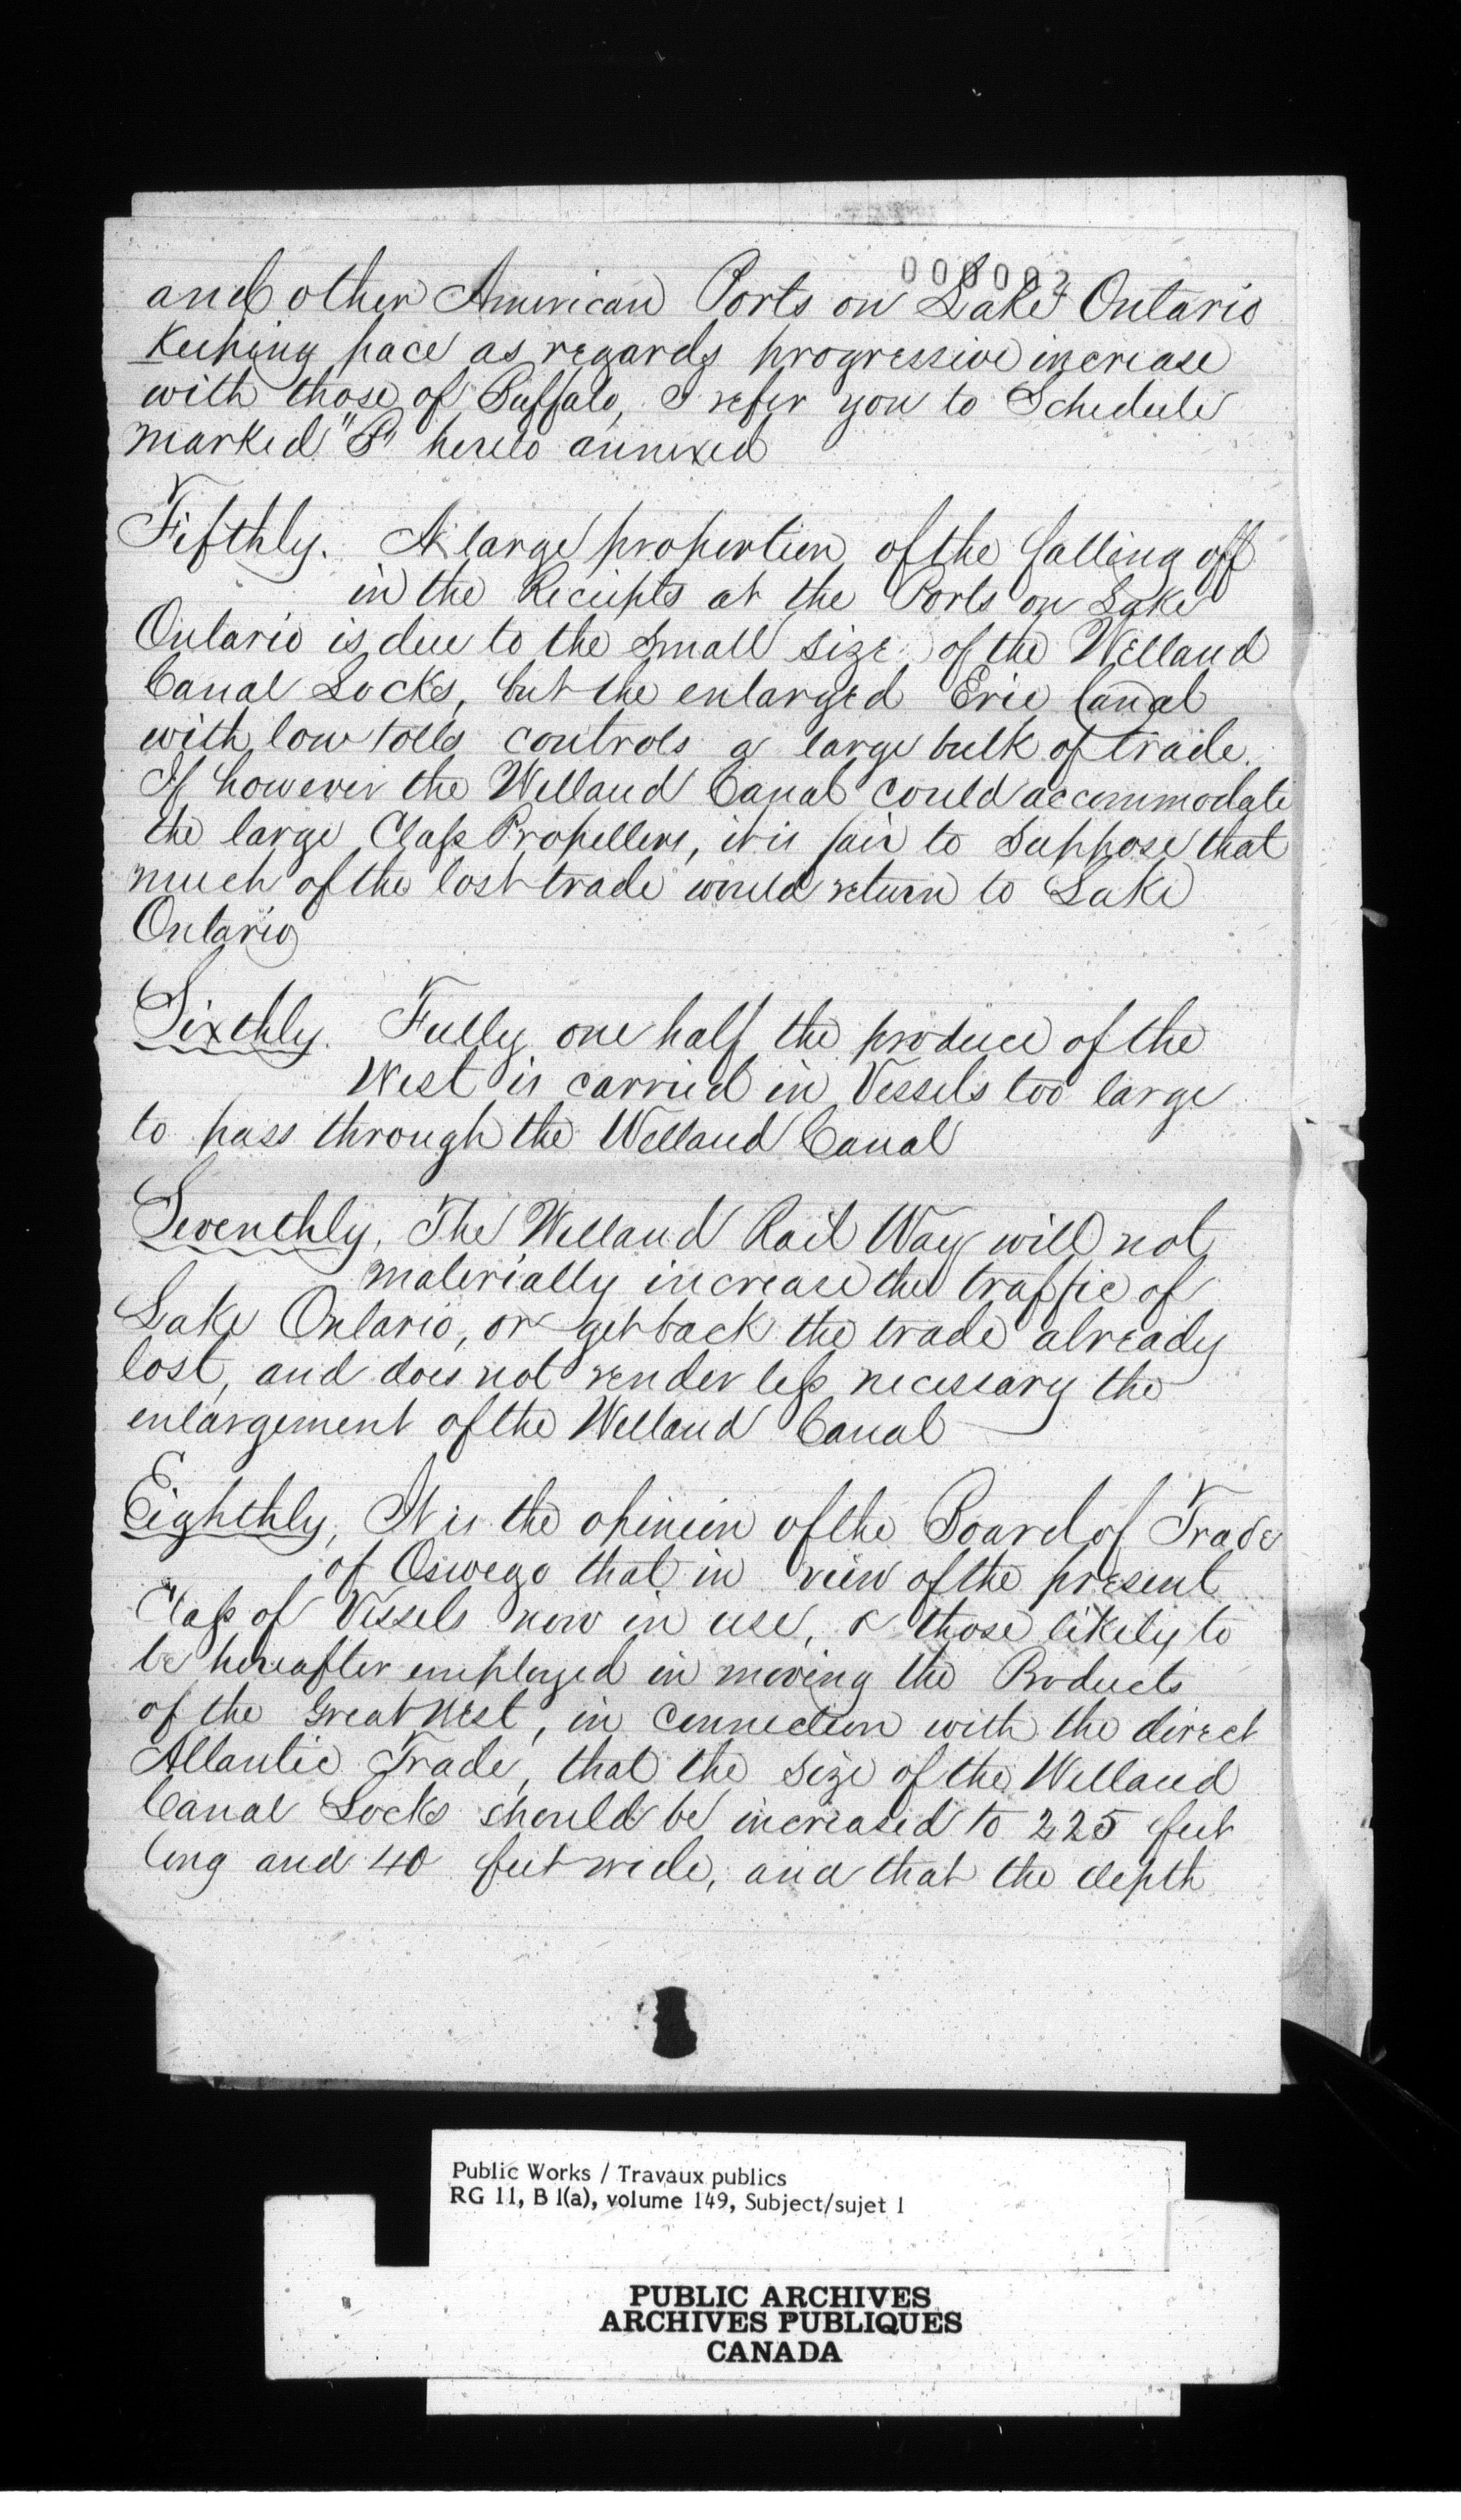 000092
and other American Ports on Lake Ontario
Keeping pace as regards progressive increase
with those of Buffalo, I refer you to Schedule
marked " " hereto annexed
Fifthly. A large proportion of the falling off
in the Receipts at the Ports on Lake
Ontario is due to the Small size of the Welland
Canal Locks, but the enlarged Erie Canal
with low tolls controls a large bulk of trade.
If however the Welland Canal could accommodate
the large Class Propellers, it is fair to Suppose that
much of the lost trade would return to Lake
Ontario
Sixthly. Fully one half the produce of the
West is carried in Vessels too large
to pass through the Welland Canal
Seventhly, The Welland Rail Way will not
materially increase the traffic of
Lake Ontario, or get back the trade already
lost, and does not render less necessary the
enlargement of the Welland Canal
Eighthly, It is the opinion of the Board of Trade
of Oswego that in view of the present
Class of Vessels now in use, & those likely to
be hereafter employed in moving the Products
of the Great West, in connection with the direct
Atlantic Trade, that the size of the Welland
Canal Locks should be increased to 225 feet
long and 40 feet wide, and that the depth
Public Works / Travaux publics
RG 11, B 1(a), volume 149, Subject/sujet 1
PUBLIC ARCHIVES
ARCHIVES PUBLIQUES
CANADA